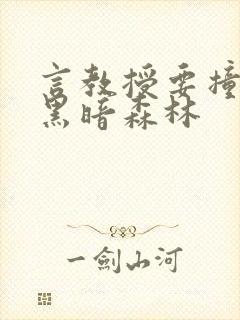 言教授要撞
黑暗森林
一劍山河